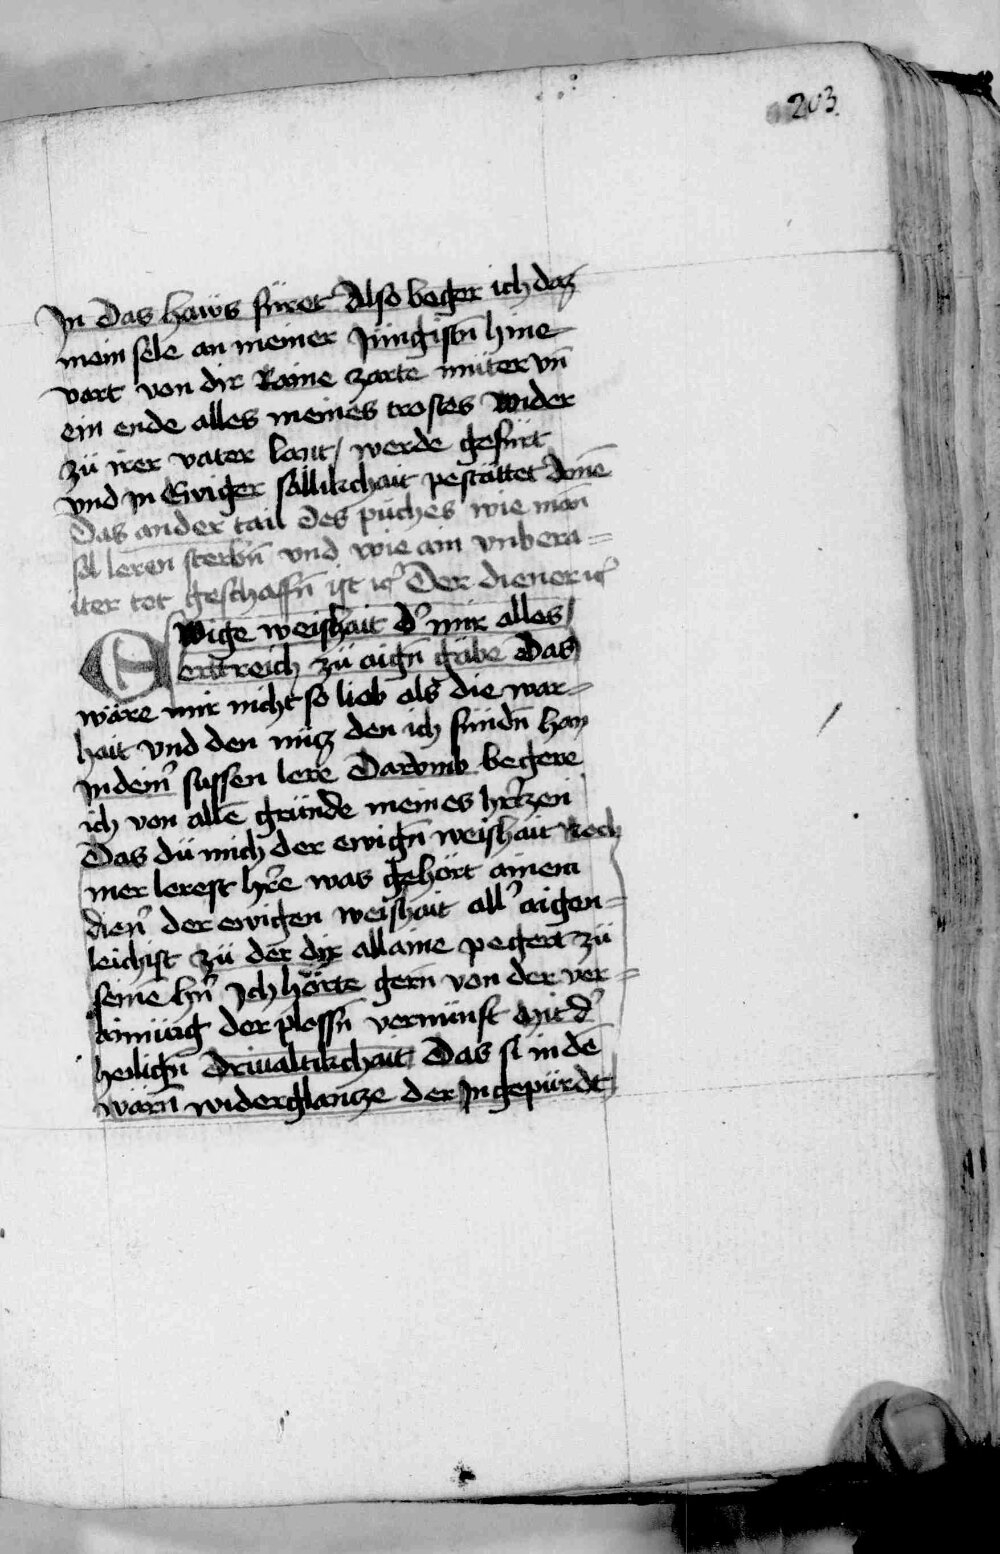 203.
In das haẅs füret Also beger ich daz
mein sele an meiner Jüngistn̄ hine
vart von dir Raine zarte müter vn̄
ein ende alles meines trostes wider
zü irer vater lant / werde gefürt
vnd in Ewiger sällikchait pestättet Amē
Das ander tail des püches wie man
sol leren̄ sterbn̄ vnd wie ain vnbera=
iter tot geschaffn̄ ist ꝛc̄ Der diener ꝛc̄
EWige weishait d' mir alles
ertreich zü aign̄ gäbe Das
wäre mir nicht so lieb als die war=
hait vnd den nücz den ich fündn̄ han
In dein' süssen lere Darvmb begere
ich von allē gründe meines hr̄czen
Das dü mich der ewign̄ weishait Noch
mer lerest hr̄e was gehört ainem
dien' der ewigen weishait all' aigen=
leichist zü der dir allaine pegert zü
seinē hn̄ Ich hörte gern̄ von der ver=
ainüng der plossn̄ vernünft mit d'
heilign̄ Driualtikchait Das si in dē
warn̄ widerglancze der Ingepürdt